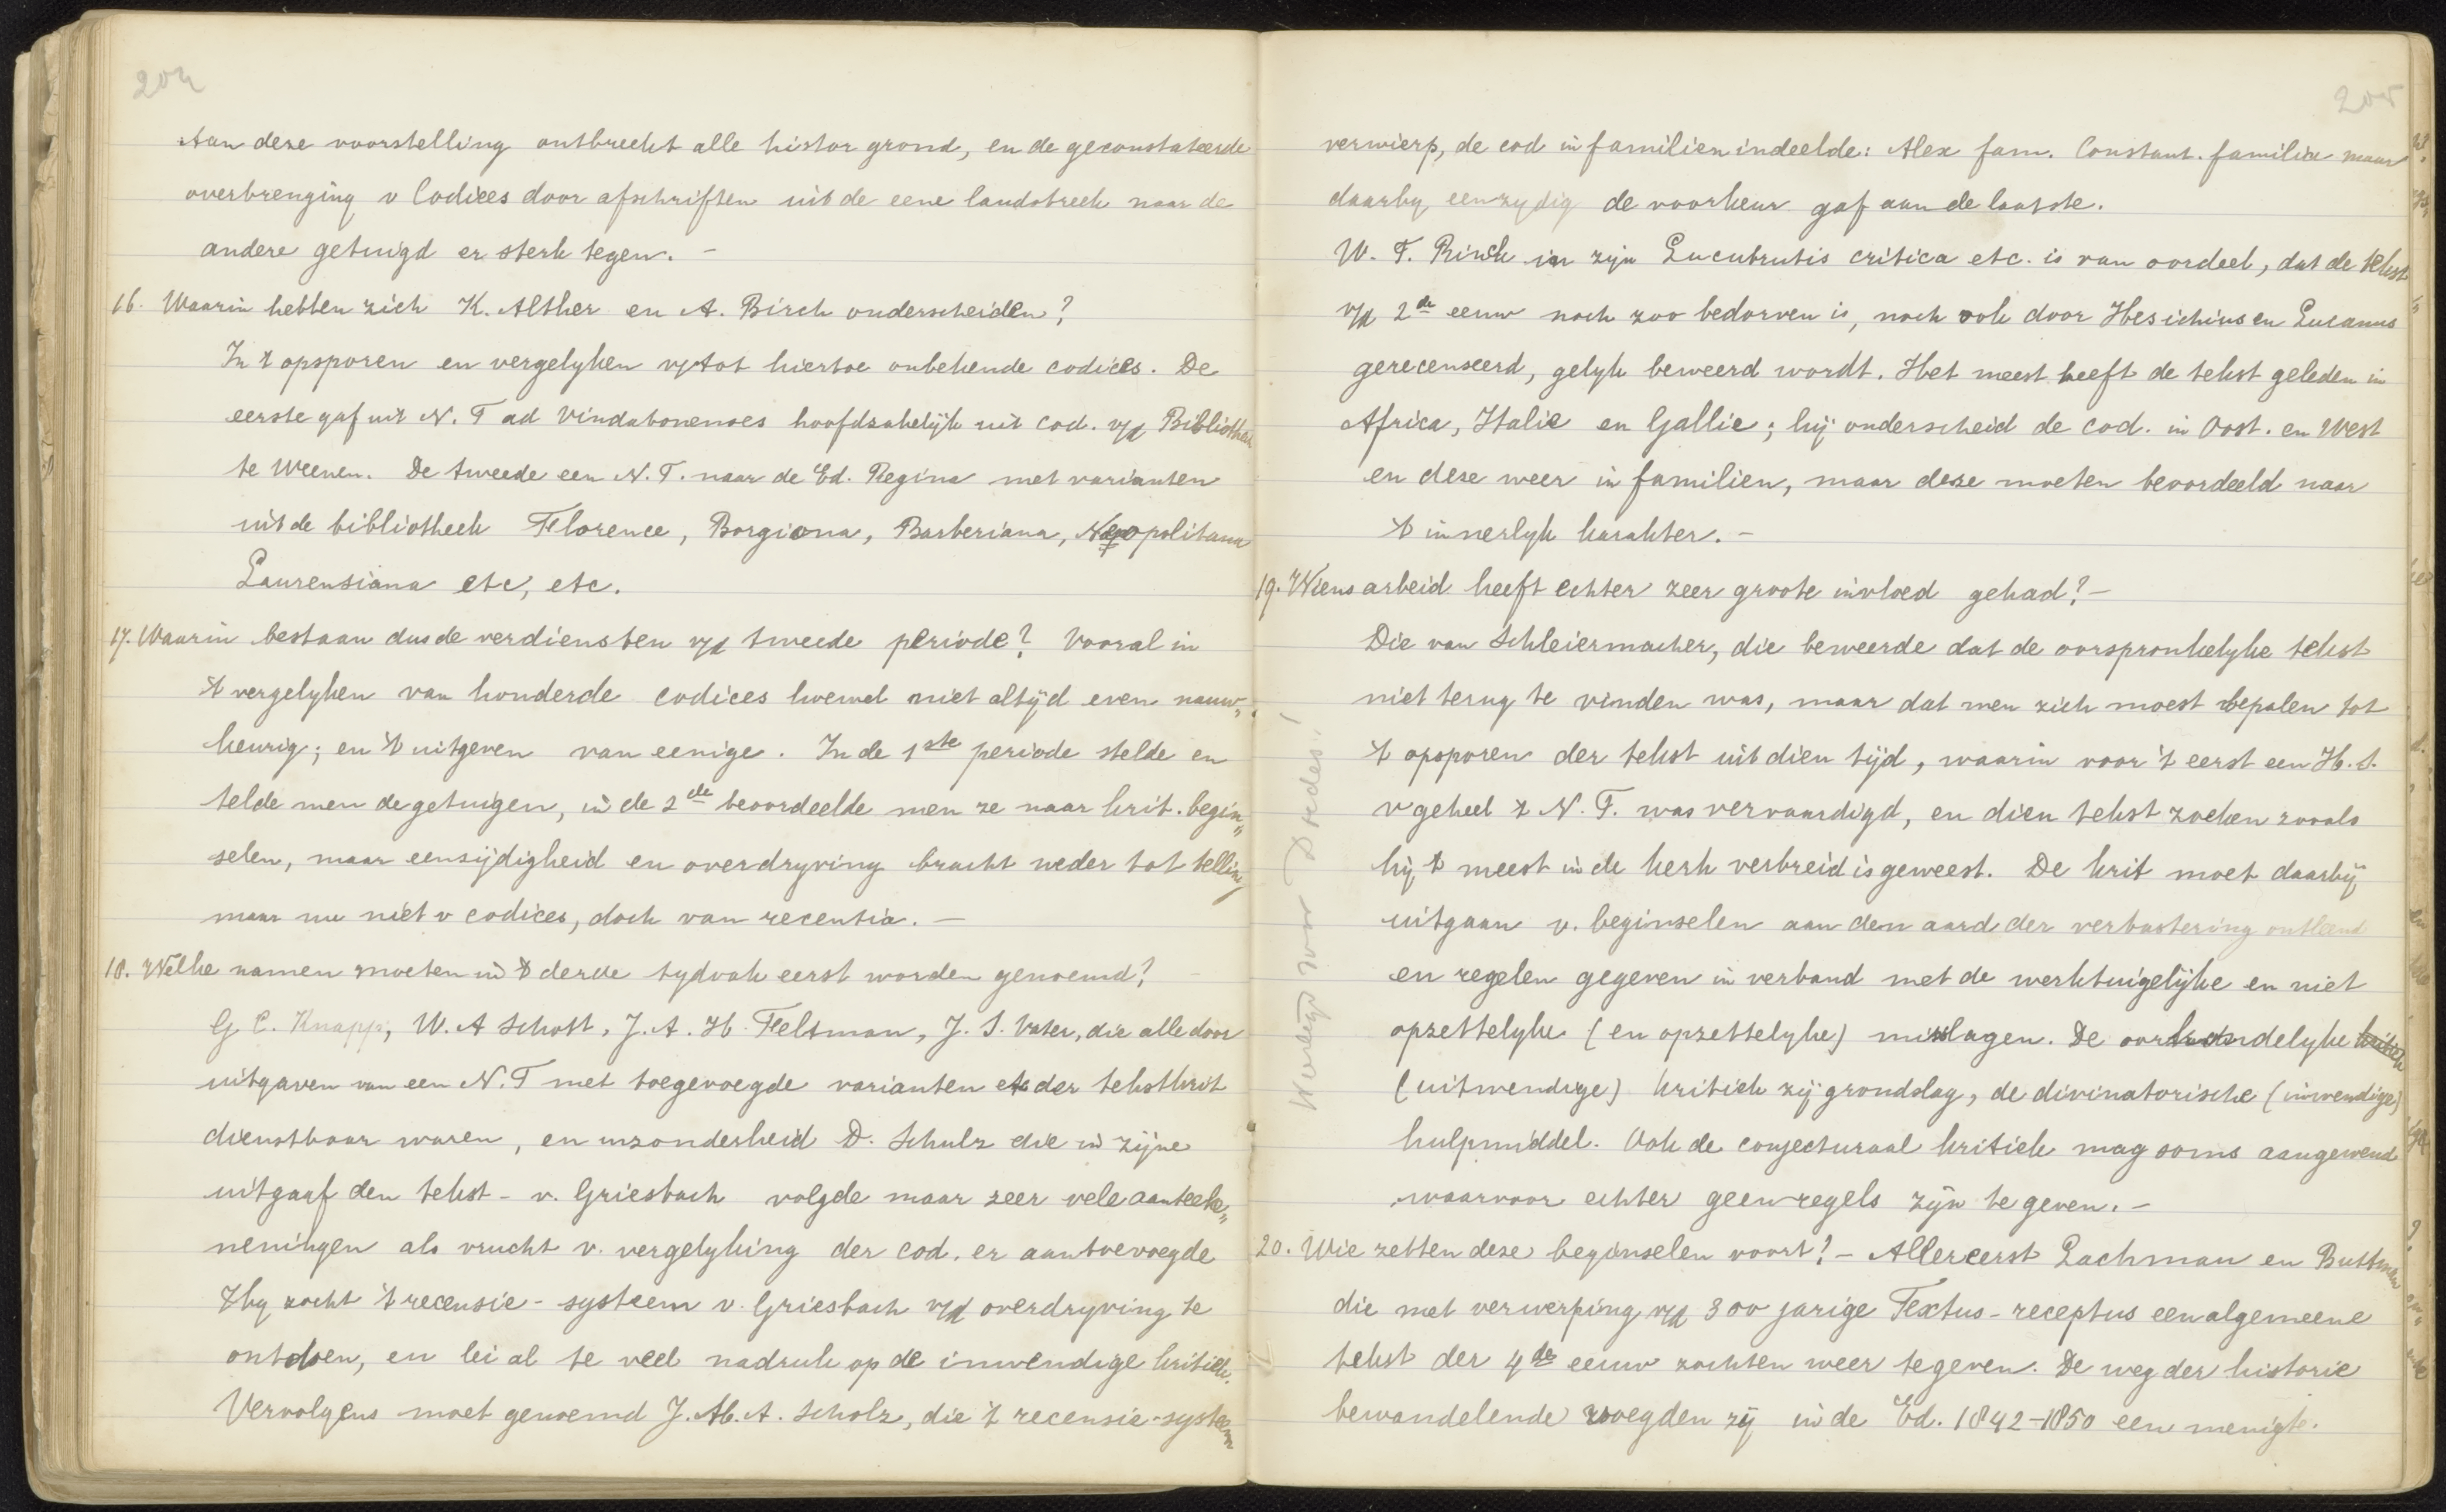 204
Aan deze voorstelling ontbreekt alle histor grond, en de geconstateerde
overbrenging v Codices door afschriften uit de eene landstreek naar de
andere getuigd er sterk tegen. –
16. Waarin hebben zich K. Alther en A. Birch onderscheiden?
In 't opsporen en vergelyken v/ tot hiertoe onbekende codices. De
eerste gaf uit N. T ad Vindabonenses hoofdzakelijk uit cod. v/d Bibliotheek
te Weenen. De tweede een N. T. naar de Ed. Regina met varianten
uit de bibliotheek Florence, Borgiona, Barberiana, Neopolitana
Laurensiana etc, etc.
17. Waarin bestaan dus de verdiensten v/d tweede periode? Vooral in
't vergelyken van honderde codices hoewel niet altijd even nauw„
keurig; en 't uitgeven van eenige. In de 1ste periode stelde en
telde men de getuigen, in de 2de beoordeelde men ze naar krit. begin„
selen, maar eensijdigheid en overdryving bracht weder tot telling
maar nu niet v codices, doch van recentia. –
18. Welke namen moeten in 't derde tydvak eerst worden genoemd?
G C. Knapp, W. A Schott, J. A. H. Feltman, J. S. Vater, die alle door
uitgaven van een N. T met toegevoegde varianten etc der tekstkrit
dienstbaar waren, en inzonderheid D. Schulz die in zijne
uitgaaf den tekst - v. Griesbach volgde maar zeer vele aanteeke„
neningen als vrucht v. vergelyking der cod. er aantoevoegde
Hy zocht 't recensie - systeem v. Griesbach v/d overdryving te
ontdoen, en lei al te veel nadruk op de inwendige kritiek.
Vervolgens moet genoemd J. M. A. Scholz, die 't recensie-systeem
205
verwierp, de cod in familien indeelde: Alex fam. Constant. familie maar
daarby eenzydig de voorkeur gaf aan de laatste.
W. F. Rinck in zijn Lucubrutis critica etc. is van oordeel, dat de tekst
v/d 2de eeuw noch zoo bedorven is, noch ook door Hesichius en Lucanus
gerecenseerd, gelyk beweerd wordt. Het meest heeft de tekst geleden in
Africa, Italie en Gallie; hij onderscheid de cod. in Oost. en West
en deze weer in familien, maar deze moeten beoordeeld naar
't innerlyk karakter. –
19. Wiens arbeid heeft echter zeer groote invloed gehad? –
Die van Schleiermacher, die beweerde dat de oorspronkelyke tekst
niet terug te vinden was, maar dat men zich moest bepalen tot
't opsporen der tekst uit dien tijd, waarin voor 't eerst een H. S.
v geheel 't N. T. was vervaardigd, en dien tekst zoeken zooals
hij 't meest in de kerk verbreid is geweest. De krit moet daarbij
uitgaan v. beginselen aan den aard der verbastering ontleend
en regelen gegeven in verband met de werktuigelijke en niet
opzettelyke (en opzettelyke) misslagen. De oorkondelyke kritiek
(uitwendige) kritiek zij grondslag, de divinatorische (inwendige)
hulpmiddel. Ook de conjecturaal kritiek mag soms aangewend
waarvoor echter geen regels zijn te geven. –
20. Wie zetten deze beginselen voort? – Allereerst Lachman en Buttman
die met verwerping v/d 300 jarige Textus-receptus een algemeene
tekst der 4de eeuw zochten weer te geven. De weg der historie
bewandelende voegden zij in de Ed. 1842-1850 een menigte.